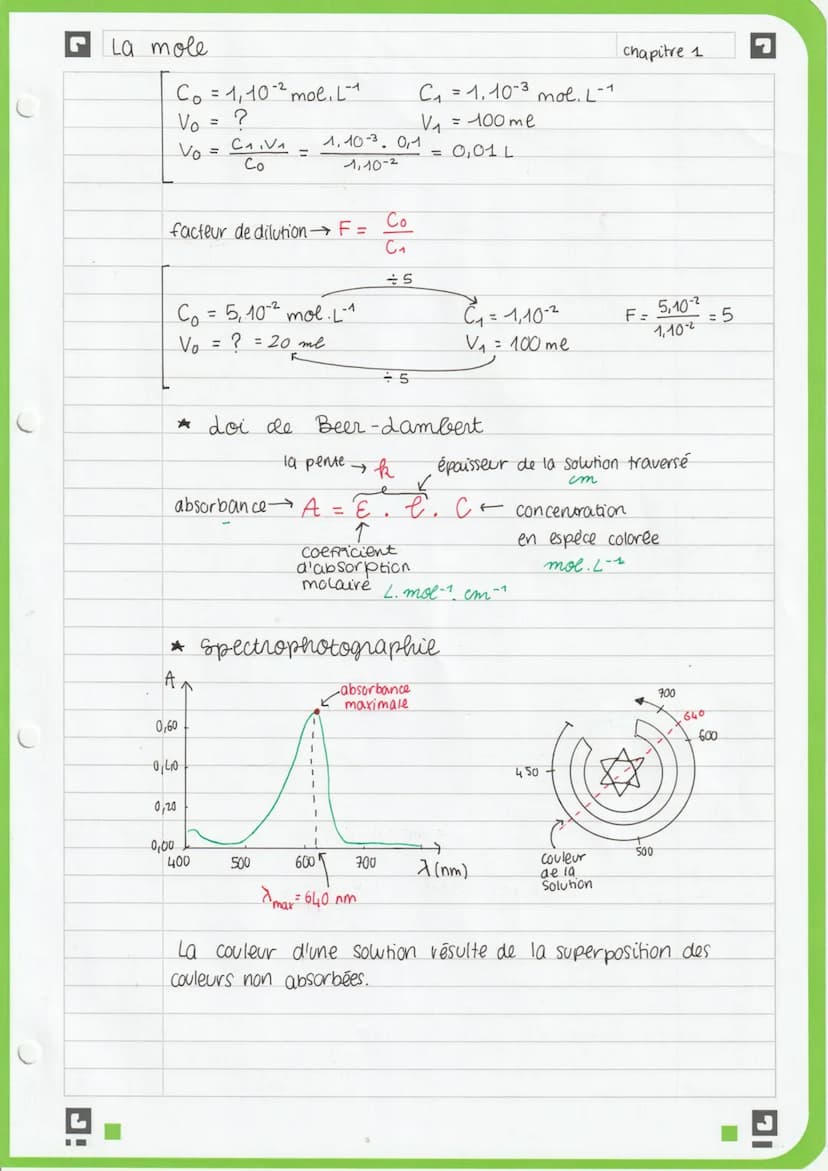 La mole
chapitre 1
C₀ = 1,10⁻² mol.L⁻¹ C₁ = 1.10⁻³ mol.L⁻¹
V₀ = ? V₁ = 100 ml
V₀ = C₁.V₁ / C₀ = 1.10⁻³. 0,1 / 1,10⁻² = 0,01 L
facteur de dilution → F = C₀ / C₁
÷ 5
C₀ = 5,10⁻² mol.L⁻¹ C₁ = 1,10⁻² F = 5,10⁻² / 1,10⁻² = 5
V₀ = ? = 20 ml V₁ = 100 ml
÷ 5
★ Loi de Beer-Lambert
la pente → k épaisseur de la solution traversé
cm
absorbance → A = ε . l . C ← concentration
en espèce colorée
coefficient
d'absorption
mol.L⁻¹
molaire L.mol⁻¹.cm⁻¹
★ Spectrophotographie
A
absorbance
maximale
0,60
0,40
0,20
0,00
400 500 600 700 λ(nm)
λmax = 640 nm
700
640
600
450
500
couleur
de la
solution
La couleur d'une solution résulte de la superposition des
couleurs non absorbées.